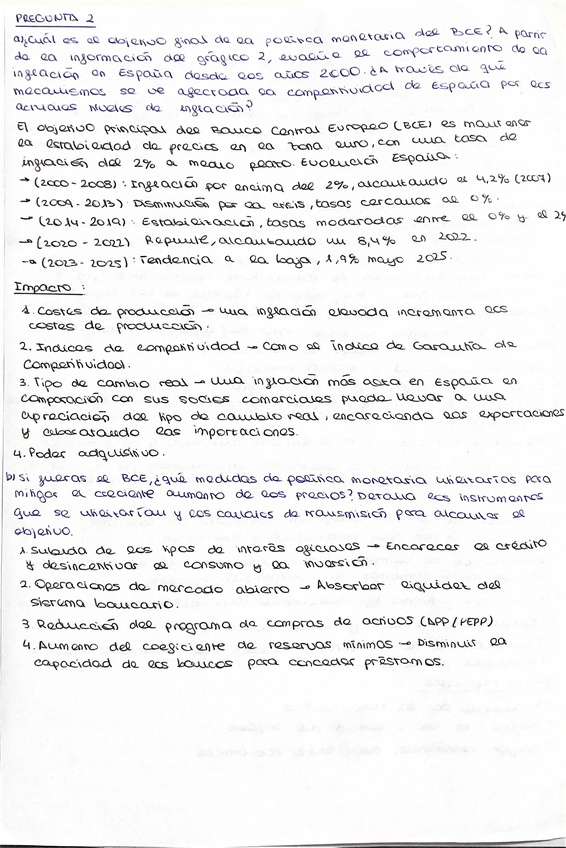 PREGUNTA 2
a) ¿Cuál es el objetivo final de la política monetaria del BCE? A partir
de la información del gráfico 2, evalúe el comportamiento de la
inflación en España desde los años 2000. ¿A través de qué
mecanismos se ve afectada la competitividad de España por los
actuales niveles de inflación?
El objetivo principal del Banco Central Europeo (BCE) es mantener
la estabilidad de precios en la zona euro, con una tasa de
inflación del 2% a medio plazo. Evolución España:
→ (2000-2008): Inflación por encima del 2%, alcanzando el 4,2% (2007)
→ (2009-2013): Disminución por la crisis, tasas cercanas al 0%.
→ (2014-2019): Estabilización, tasas moderadas entre el 0% y el 2%
→ (2020-2022) Repunte, alcanzando un 8,4% en 2022.
→ (2023-2025): Tendencia a la baja, 1,9% mayo 2025.
Impacto:
1. Costes de producción → una inflación elevada incrementa los
costes de producción.
2. Indices de competitividad → Como el Índice de Garantía de
Competitividad.
3. Tipo de cambio real → Una inflación más alta en España en
comparación con sus socios comerciales puede llevar a una
apreciación del tipo de cambio real, encareciendo las exportaciones
y abaratando las importaciones.
4. Poder adquisitivo.
b) Si fueras el BCE, ¿qué medidas de política monetaria utilizarías para
mitigar el creciente aumento de los precios? Detalla los instrumentos
que se utilizarían y los canales de transmisión para alcanzar el
objetivo.
1. Subida de los tipos de interés oficiales → Encarecer el crédito
y desincentivar el consumo y la inversión.
2. Operaciones de mercado abierto → Absorber liquidez del
sistema bancario.
3 Reducción del programa de compras de activos (APP/PEPP)
4. Aumento del coeficiente de reservas mínimas → Disminuir la
capacidad de los bancos para conceder préstamos.